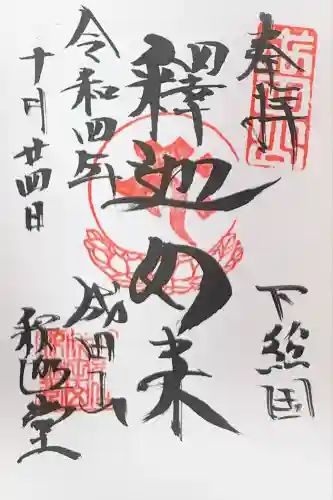 奉拝
下総国
釋迦如来
成田山
釈迦堂
令和四年
十月廿四日